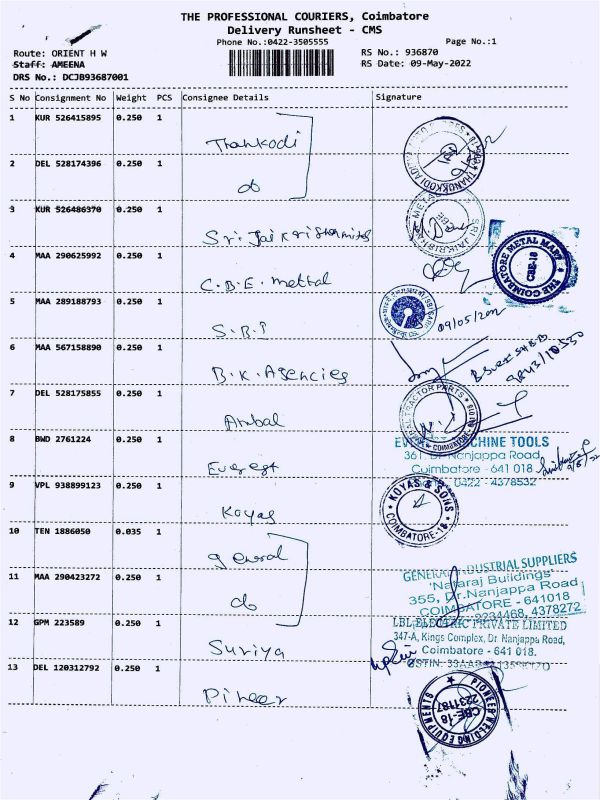 THE PROFESSIONAL COURIERS, Coimbatore
Delivery Runsheet - CMS
Phone No.:0422-3505555
Page No.:1
Route: ORIENT H W
RS No.: 936870
Staff: AMEENA
RS Date: 09-May-2022
DRS No.: DCJB93687001
S No Consignment No Weight PCS Consignee Details Signature
1 KUR 526415895 0.250 1 Thankodi
2 DEL 528174396 0.250 1 do
3 KUR 526486370 0.250 1 Sri Jai Krishna
4 MAA 290625992 0.250 1 C.B.E. mettal
THE COIMBATORE METAL MART
CBE-18
5 MAA 289188793 0.250 1 S.B.I
09/05/2022
6 MAA 567158890 0.250 1 B.K. Agencies
7 DEL 528175855 0.250 1 Ambal
TRACTOR PARTS
COIMBATORE
8 BWD 2761224 0.250 1 Everest
MACHINE TOOLS
361, Dr. Nanjappa Road
Coimbatore - 641 018
0422 - 4378532
9 VPL 938899123 0.250 1 Koyas
KOYAS & SONS
COIMBATORE-18
10 TEN 1886050 0.035 1 general
11 MAA 290423272 0.250 1 do
GENERAL INDUSTRIAL SUPPLIERS
'Nataraj Buildings'
355, Dr.Nanjappa Road
COIMBATORE - 641018
2234468, 4378272
12 GPM 223589 0.250 1 Suriya
LBL ELECTRIC PRIVATE LIMITED
347-A, Kings Complex, Dr. Nanjappa Road,
Coimbatore - 641 018.
13 DEL 120312792 0.250 1 Pineer
PIONEER WELDING EQUIPMENTS
CBE-18
2231187